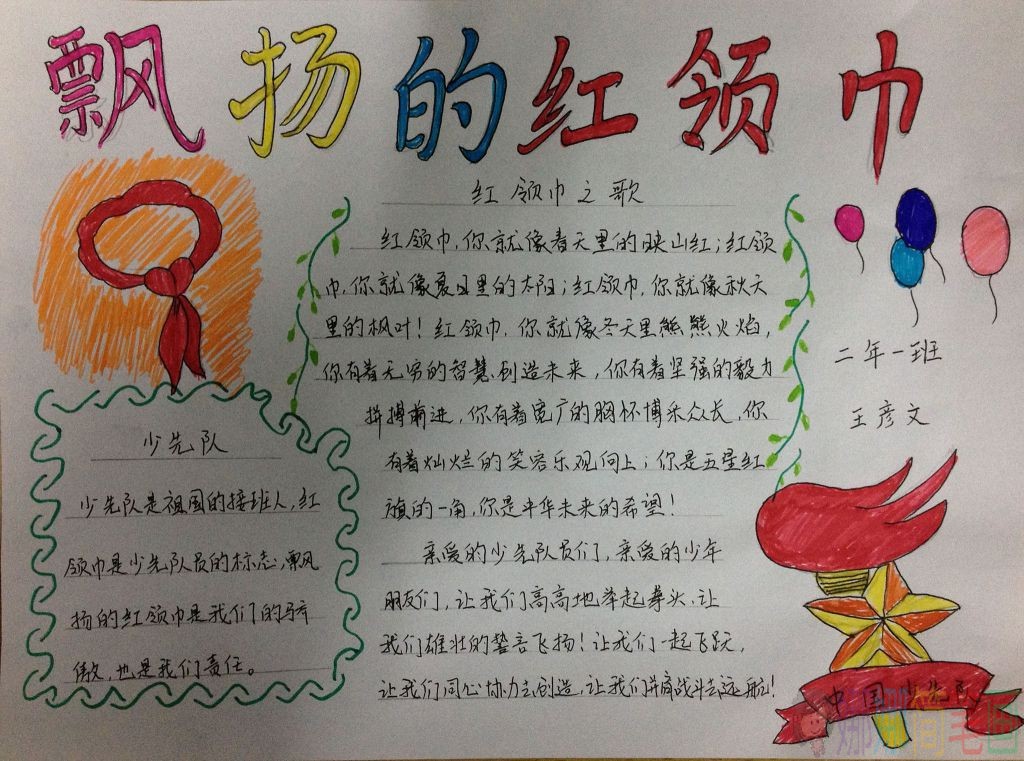 飘扬的红领巾
红领巾之歌
红领巾,你就像春天里的映山红;红领
巾,你就像夏日里的太阳;红领巾,你就像秋天
里的枫叶!红领巾,你就像冬天里熊熊火焰,
你有着无穷的智慧创造未来,你有着坚强的毅力
拼搏前进,你有着宽广的胸怀博采众长,你
有着灿烂的笑容乐观向上;你是五星红
旗的一角,你是中华未来的希望!
亲爱的少先队员们,亲爱的少年
朋友们,让我们高高地举起拳头,让
我们雄壮的誓言飞扬!让我们一起飞跃,
让我们同心协力去创造,让我们并肩战斗去远航!
少先队
少先队是祖国的接班人,红
领巾是少先队员的标志,飘
扬的红领巾是我们的骄
傲,也是我们责任。
二年一班
王彦文
中国少先队
娜娜简笔画